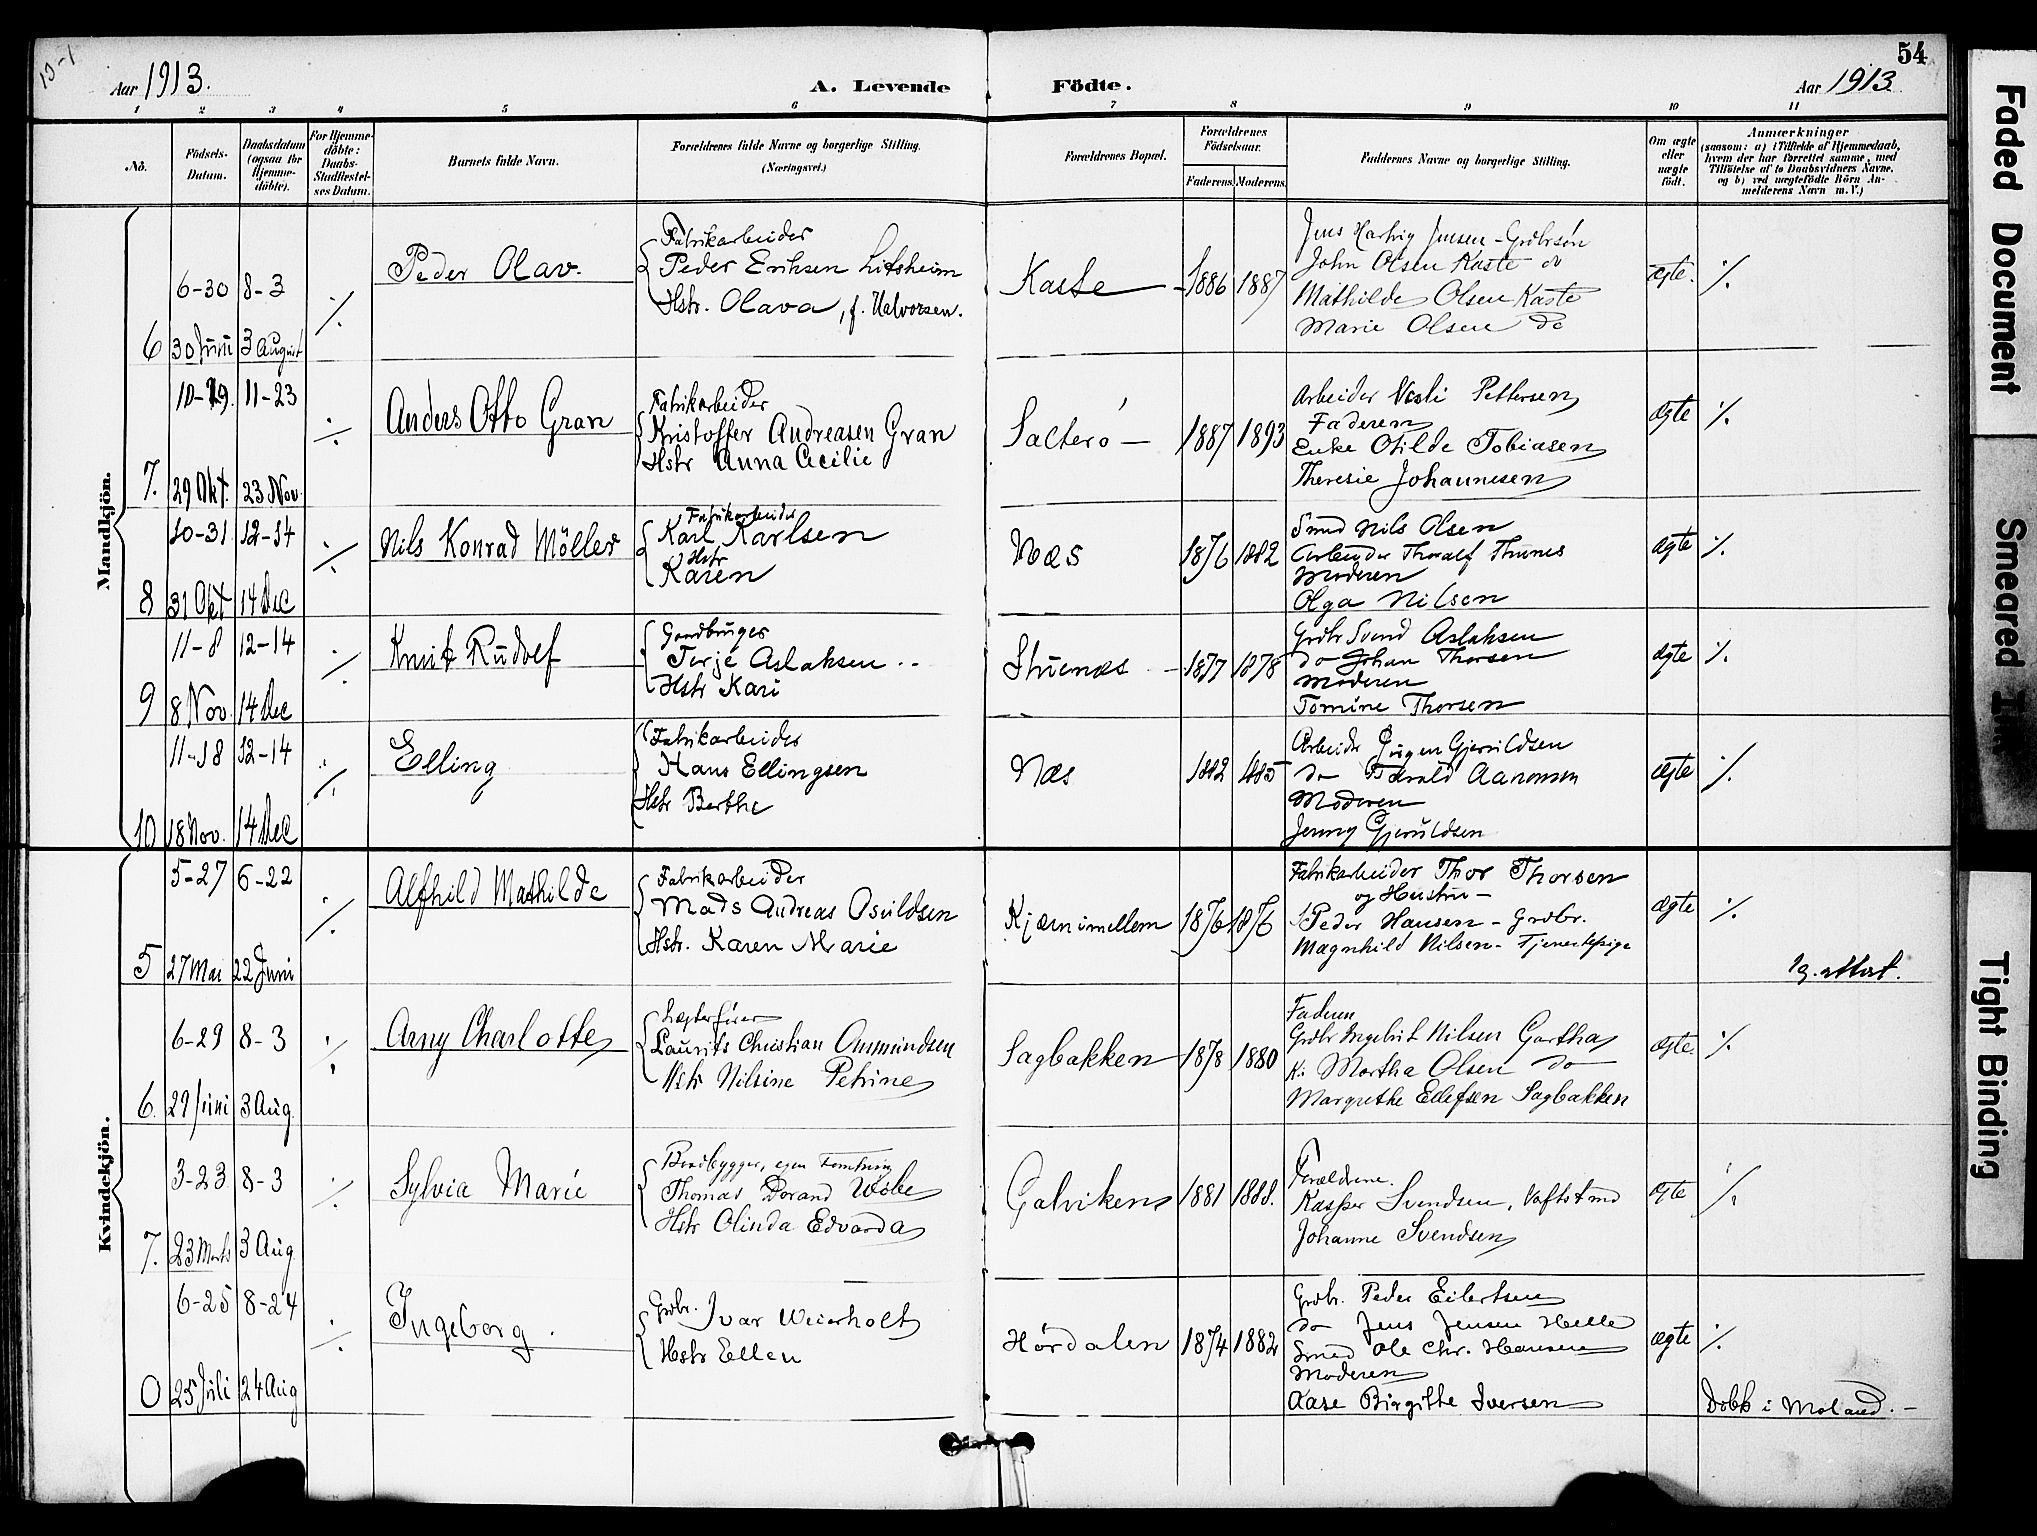 10-1
54
Aar 1913.
A. Levende Födte.
Aar 1913.
1 2 3 4 5 6 7 8 9 10 11
No.
Födsels-
Datum.
Daabsdatum
(ogsaa for
Hjemme-
döbte).
For Hjemme-
döbte:
Daabs-
Stadfæstel-
ses Datum.
Barnets fulde Navn.
Forældrenes fulde Navne og borgerlige Stilling.
(Næringsvei.)
Forældrenes Bopæl.
Forældrenes
Födselsaar.
Faderens. Moderens.
Faddernes Navne og borgerlige Stilling.
Om ægte
eller
uægte
født.
Anmærkninger
(saasom: a) i Tilfælde af Hjemmedaab,
hvem der har forrettet samme, med
Tilföielse af to Daabsvidners Navne,
og b) ved uægtefödte Börn An-
melderens Navn m. V.)
Mandkjön.
6
6-30
30 Juni
8-3
3 August
⁒
Peder Olav.
Fabrikarbeider
Peder Eriksen Litsheim
Hstr. Olava, f. Halvorsen.
Kaste
1886
1887
Jens Hartvig Jensen - Grdbrsøn
John Olsen Kaste do
Mathilde Olsen Kaste
Marie Olsen do
ægte.
⁒
7.
10-29.
29 Okt.
11-23
23 Nov.
⁒
Anders Otto Gran
Fabrikarbeider
Kristoffer Andreasen Gran
Hstr Anna Cecilie
Salterö
1887
1893
Arbeider Nesli Pettersen
Faderen
Enke Otilde Tobiasen
Theresie Johannesen
ægte
⁒
8
10-31
31 Okt
12-14
14 Dec
⁒
Nils Konrad Möller
Fabrikarbeider
Karl Karlsen
Hstr
Karen
Næs
1876
1882
Smed Nils Olsen
Arbeider Thoralf Thunes
Moderen
Olga Nilsen
ægte
⁒
9
11-8
8 Nov.
12-14
14 Dec
⁒
Knut Rudolf
Gaardbruger
Terje Aslaksen
Hstr Kari
Stuenæs
1877
1878
Grdbr Svend Aslaksen
do Johan Thorsen
Moderen
Tomine Thorsen
ægte
⁒
10
11-18
18 Nov.
12-14
14 Dec
⁒
Elling
Fabrikarbeider
Hans Ellingsen
Hstr Berthe
Næs
1882
1885
Arbeider Jörgen Gjeruldsen
do Tarald Aanonsen
Moderen
Jenny Gjeruldsen
ægte
⁒
Kvindekjön.
5
5-27
27 Mai
6-22
22 Juni
⁒
Alfhild Mathilde
Fabrikarbeider
Mads Andreas Osuldsen
Hstr. Karen Marie
Kjærnimellem
1876
1876
Fabrikarbeider Thor Thorsen
og Hustru -
Peder Hansen - Grdbr.
Magnhild Nilsen - Tjenestepige
ægte
⁒
19. attest.
6.
6-29
29 Juni
8-3
3 Aug.
⁒
Arny Charlotte
Lægterfører
Laurits Christian Ommundsen
Hstr Nilsine Petrine
Sagbakken
1878
1880
Faderen
Grdbr Ingebrit Nilsen Gartha
K. Martha Olsen do
Margrethe Ellefsen Sagbakken
ægte.
⁒
7.
3-23
23 Marts
8-3
3 Aug.
⁒
Sylvia Marie
Baadbygger, egen Forretning
Thomas Dorand Wibe
Hstr Olinda Edvarda
Galvikens
1881
1888.
Forældrene.
Kasper Svendsen, Vaftsmd
Johanne Svendsen
ægte
⁒
0
6-25
25 Juli
8-24
24 Aug
⁒
Ingeborg.
Grdbr. Ivar Weierholt
Hstr Ellen
Hördalen
1874
1882
Grdbr. Peder Eilertsen
do Jens Jensen Helle
Smed Ole Chr. Hansen
Moderen
Aase Birgitte Iversen
ægte
⁒
Döbt i Moland.
Faded Document
Smeared Ink
Tight Binding